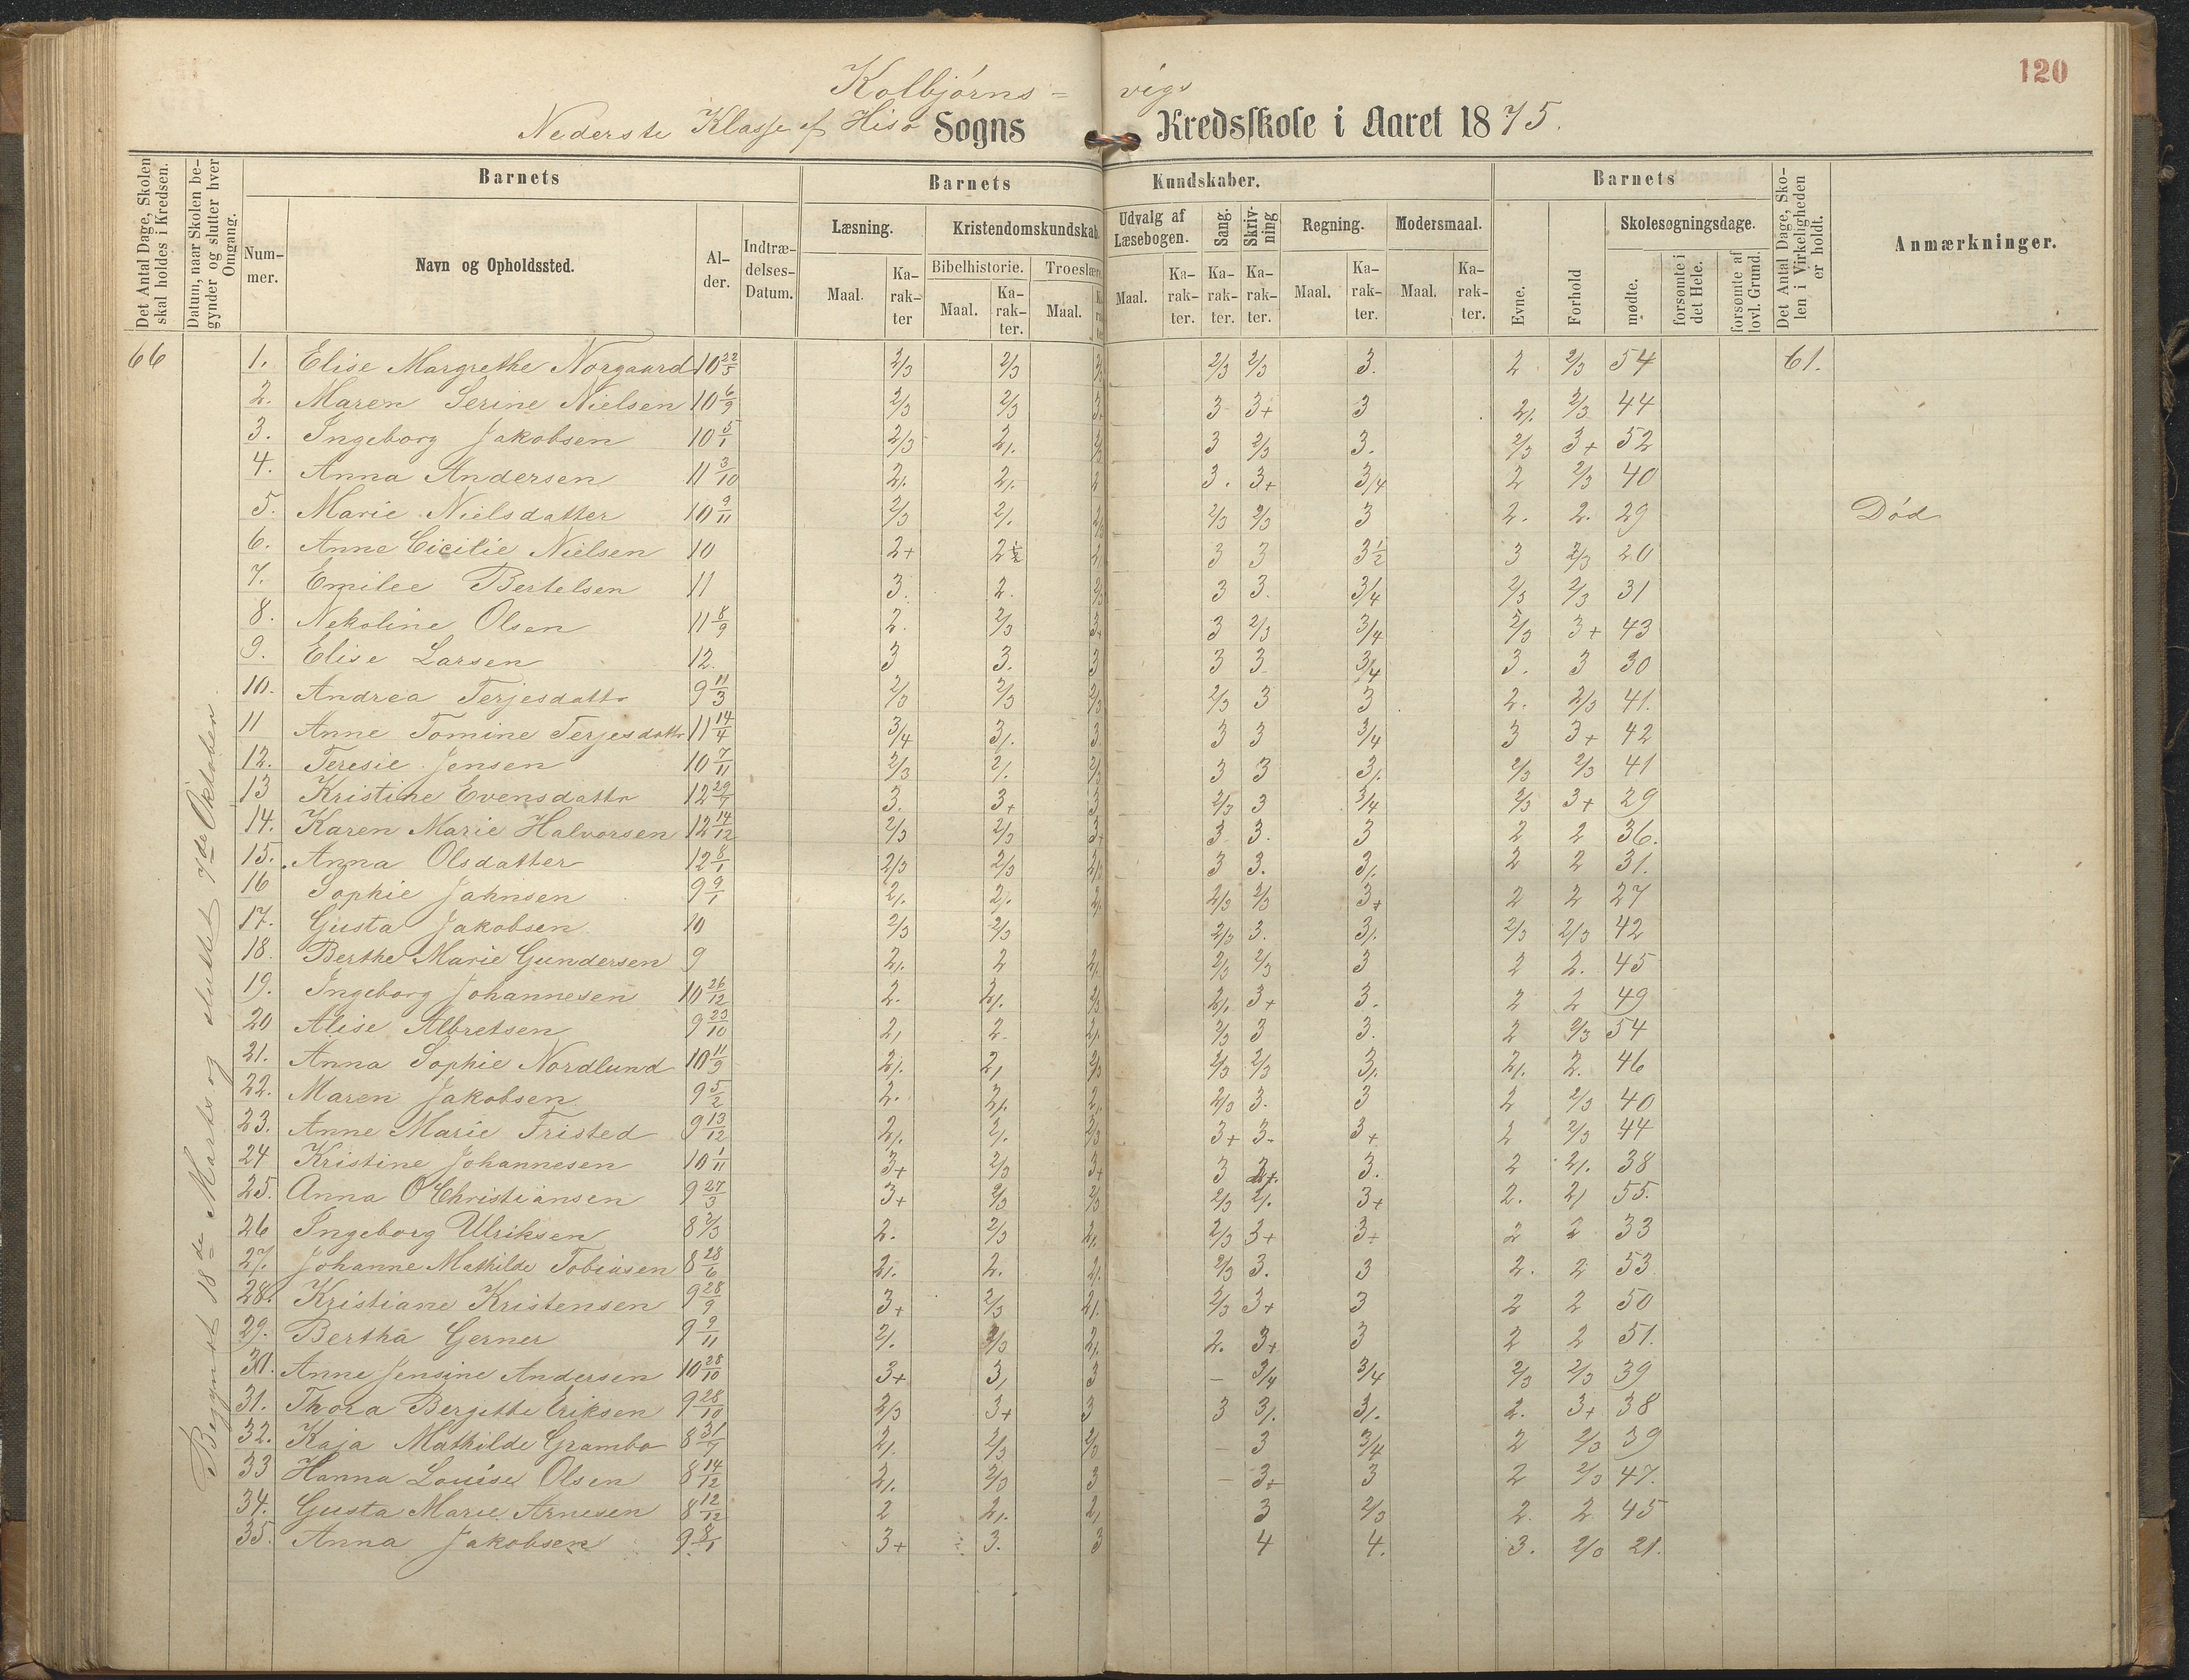 120
Kolbjørns= vigs
Nederste Klasse af Hisø Sogns Kredsskole i Aaret 1875.
Det Antal Dage, Skolen skal holdes i Kredsen.
Datum, naar Skolen begynder og slutter hver Omgang.
Barnets
Nummer.
Navn og Opholdssted.
Alder.
Indtrædelses-Datum.
Barnets Kundskaber.
Læsning.
Maal.
Karakter
Kristendomskundskab
Bibelhistorie.
Maal.
Karakter.
Troeslære
Maal.
Udvalg af Læsebogen.
Maal.
Karakter.
Sang.
Karakter.
Skrivning
Karakter.
Regning.
Maal.
Karakter.
Modersmaal.
Maal.
Karakter.
Barnets
Evne.
Forhold
Skolesøgningsdage.
mødte.
forsømte i det Hele.
forsømte af lovl. Grund.
Det Antal Dage, Skolen i Virkeligheden er holdt.
Anmærkninger.
Begyndt 18de Marts og sluttet 7de Oktober
66 1. Elise Margrethe Norgaard 10 22/5 2/3 2/3 2/3 2/3 2/3 3. 2 2/3 54 61.
2. Maren Serine Nielsen 10 6/9 2/3 2/3 3+ 3 3+ 3 2/. 2/3 44
3. Ingeborg Jakobsen 10 5/1 2/3 2/. 2/3 3 2/3 3. 2/3 3+ 52
4. Anna Andersen 11 3/10 2/. 2/. 2 3. 3+ 3/4 2 2/3 40
5. Marie Nielsdatter 10 9/11 2/3 2/. 2/3 2/3 2/3 3 2. 2. 29 Død
6. Anne Cicilie Nielsen 10 2+ 2½ 2/. 3 3 3½ 3 2/3 20
7. Emilee Bertelsen 11 3. 2. 2/3 3 3. 3/4 2/3 2/3 31
8. Nekoline Olsen 11 8/9 2. 2/3 3+ 3 2/3 3/4 2/3 3+ 43
9. Elise Larsen 12. 3 3. 3 3 3 3/4 3. 3 30
10. Andrea Terjesdattr 9 11/3 2/3 2/3 2/3 2/3 3 3 2. 2/3 41.
11 Anne Tomine Terjesdattr 11 14/4 3/4 3/. 3 3 3 3/4 3 3+ 42
12. Teresie Jensen 10 7/11 2/3 2/. 2/3 3 3 3/. 2/3 2/3 41
13 Kristine Evensdattr 12 29/7 3. 3+ 3 2/3 3 3/4 2/3 3+ 29
14. Karen Marie Halvorsen 12 14/12 2/3 2/3 3+ 3 3. 3 2 2 36.
15. Anna Olsdatter 12 8/1 2/3 2/3 2/3 3 3. 3/. 2 2 31.
16 Sophie Jahnsen 9 9/1 2/. 2/. 2/. 2/3 2/3 3+ 2 2 27
17. Gusta Jakobsen 10 2/3 2/3 2/3 3. 3/. 2/3 2/3 42
18. Berthe Marie Gundersen 9 2/. 2 2/. 2/3 2/3 3 2 2. 45
19. Ingeborg Johannesen 10 26/12 2. 2/. 2/3 2/. 3+ 3. 2 2 49
20 Alise Albretsen 9 23/10 2/ 2. 2/. 2/3 3 3. 2 2/3 54
21. Anna Sophie Nordlund 10 11/9 2/. 2/ 2/3 2/3 2/3 3/. 2/. 2. 46
22. Maren Jakobsen 9 5/2 2. 2/. 2/. 2/3 3. 3 2 2/3 40
23. Anne Marie Fristed 9 13/12 2/. 2/. 2/3 3+ 3- 3+ 2 2/3 44
24 Kristine Johannesen 10 1/11 3+ 2/3 3+ 3 3. 2 2/. 38
25. Anna O Christiansen 9 27/3 3+ 2/3 2/3 2/3 2/. 3+ 2. 2/ 55.
26 Ingeborg Ulriksen 8 2/3 2. 2/3 2/. 2/3 3+ 3+ 2 2 33
27. Johanne Mathilde Tobiasen 8 28/6 2/. 2. 2/. 2/3 3. 3 2. 2 53
28. Kristiane Kristensen 9 28/9 3+ 2/3 2/. 2/3 3+ 3 2 2 50
29. Bertha Gerner 9 9/11 2/. 2/3 2/. 2. 3+ 3 2 2 51.
30. Anne Jensine Andersen 10 28/10 3+ 3/ 3 - 3/4 3/4 2/3 2/3 39
31. Thora Bergitte Eriksen 9 28/10 2/3 3+ 3 3 3/. 3/. 2. 3+ 38
32. Kaja Mathilde Grambo 8 31/7 2/. 2/3 2/3 - 3 3/4 2 2/3 39
33 Hanna Louise Olsen 8 14/12 2/. 2/3 3 - 3+ 3 2 2/3 47.
34. Gusta Marie Arnesen 8 12/12 2 2/. 2/ 3 2/3 2. 2 45
35. Anna Jakobsen 9 8/1 3+ 3. 3 4 4. 3. 2/3 21.